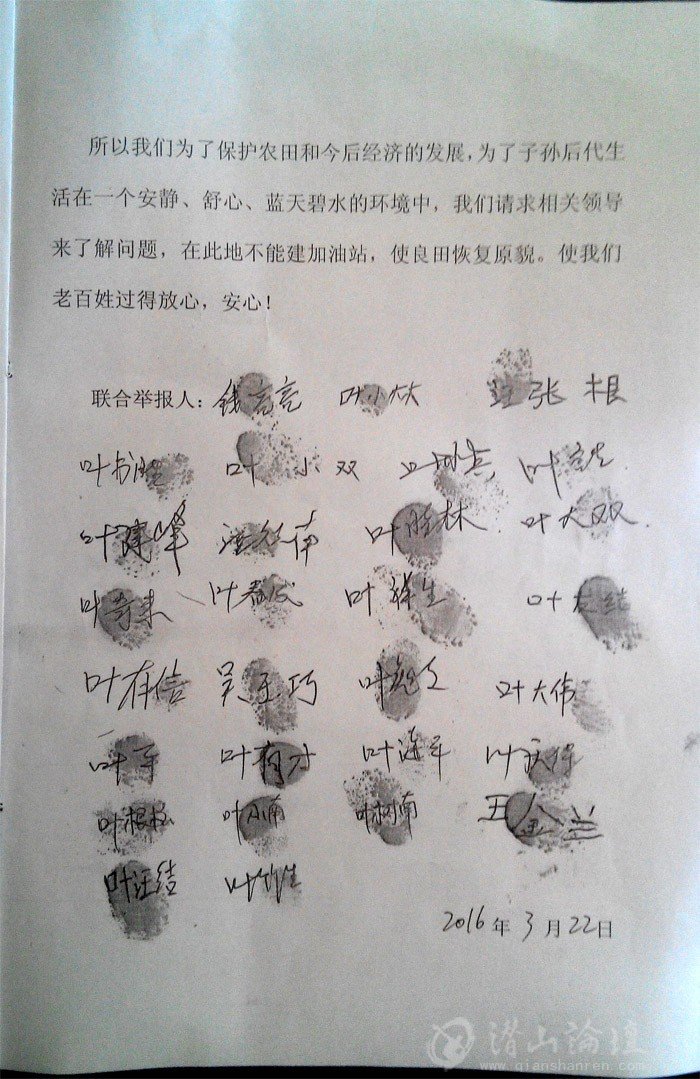 所以我们为了保护农田和今后经济的发展，为了子孙后代生
活在一个安静、舒心、蓝天碧水的环境中，我们请求相关领导
来了解问题，在此地不能建加油站，使良田恢复原貌。使我们
老百姓过得放心，安心！
联合举报人： 叶小大 张根
叶 叶小双 叶 叶
叶建峰 叶胜林 叶大双
叶奇来 叶春 叶祥生 叶
叶有信 吴玉巧 叶 叶大伟
叶军 叶有才 叶连军 叶庆
叶根 叶小南 叶树南 王金兰
叶汪结 叶竹生
2016年3月22日
潜山论坛
www.qianshanren.com